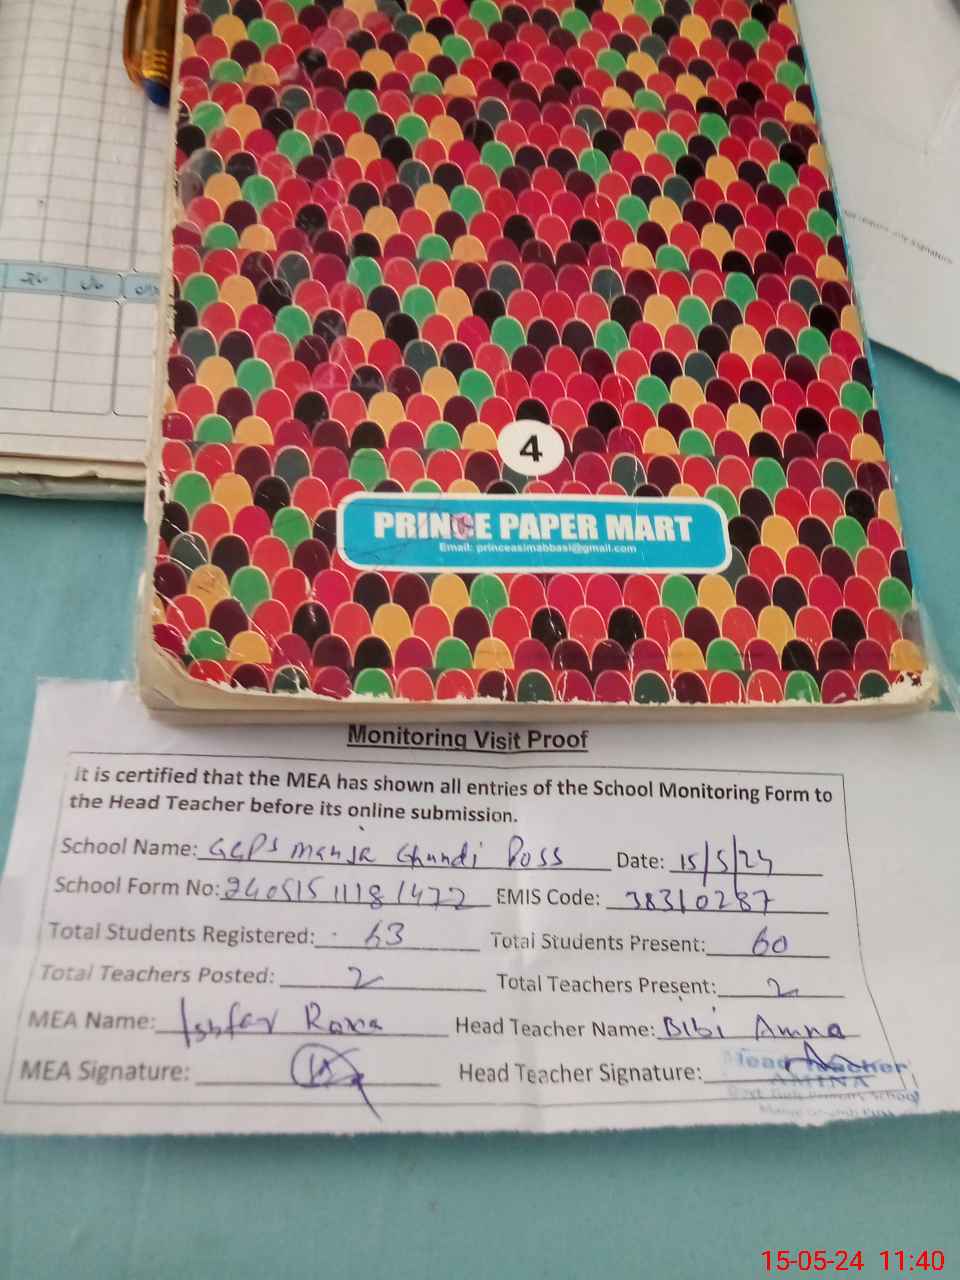 4
PRINCE PAPER MART
Email: princeasimabbasi@gmail.com
Monitoring Visit Proof
It is certified that the MEA has shown all entries of the School Monitoring Form to
the Head Teacher before its online submission.
School Name: GGPS Manja Ghundi Poss Date: 15/5/24
School Form No: 240515 1118 1472 EMIS Code: 38310287
Total Students Registered: 63 Total Students Present: 60
Total Teachers Posted: 2 Total Teachers Present: 2
MEA Name: Head Teacher Name: Bibi Amna
MEA Signature: Head Teacher Signature:
Head Teacher
AMINA
Govt. Girls Primary School
15-05-24 11:40